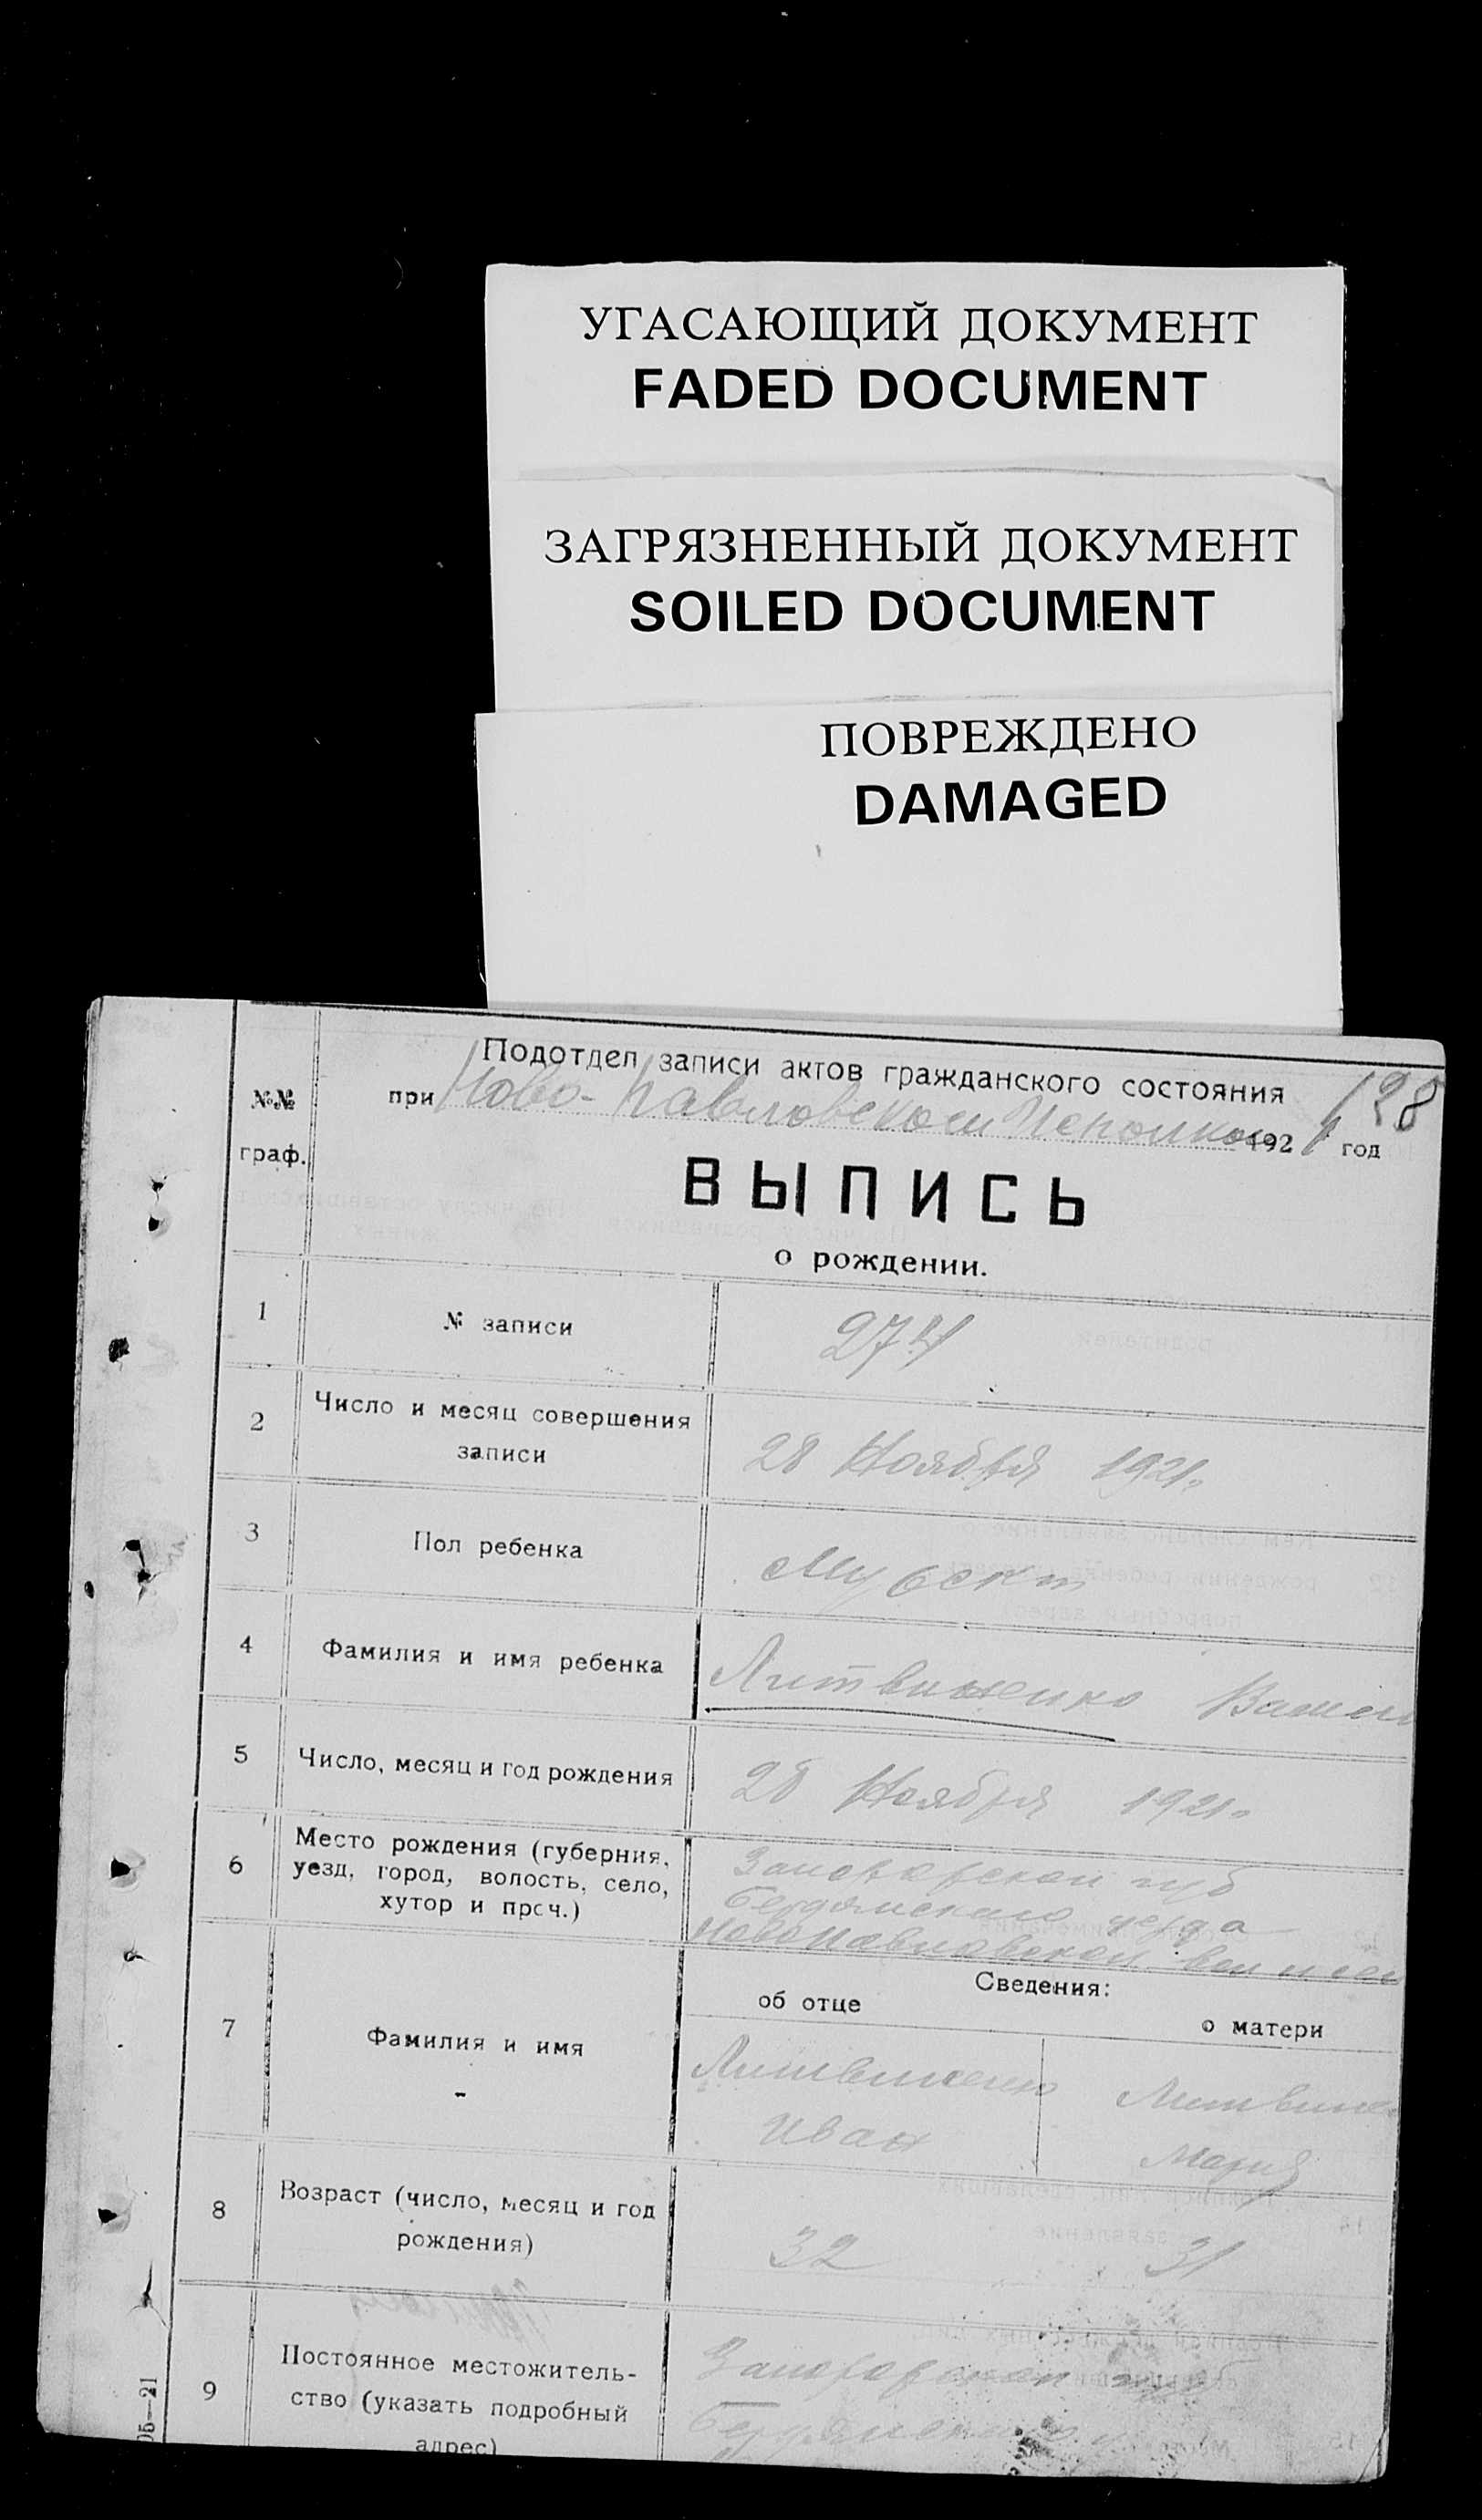 УГАСАЮЩИЙ ДОКУМЕНТ
FADED DOCUMENT
ЗАГРЯЗНЕННЫЙ ДОКУМЕНТ
SOILED DOCUMENT
ПОВРЕЖДЕНО
DAMAGED
Подотдел записи актов гражданского состояния
128
при Ново-Павловском 1921 год
№№
граф.
ВЫПИСЬ
о рождении.
1 № записи 274
2 Число и месяц совершения
записи
28 Ноября 1921г.
3 Пол ребенка
4 Фамилия и имя ребенка Литвиненко
5 Число, месяц и год рождения 28 Ноября 1921г.
6 Место рождения (губерния,
уезд, город, волость, село,
хутор и проч.)
Запорожской губ
Бердянского уезда
Новопавловской вол и сел
Сведения:
об отце о матери
7 Фамилия и имя
Литвиненко Литвине
Иван Мария
8 Возраст (число, месяц и год
рождения)
32 31
9 Постоянное местожитель-
ство (указать подробный
адрес)
Запорожской губ
Бердянского
05—21